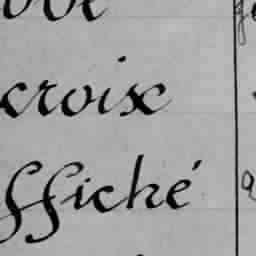 croix
ffiché